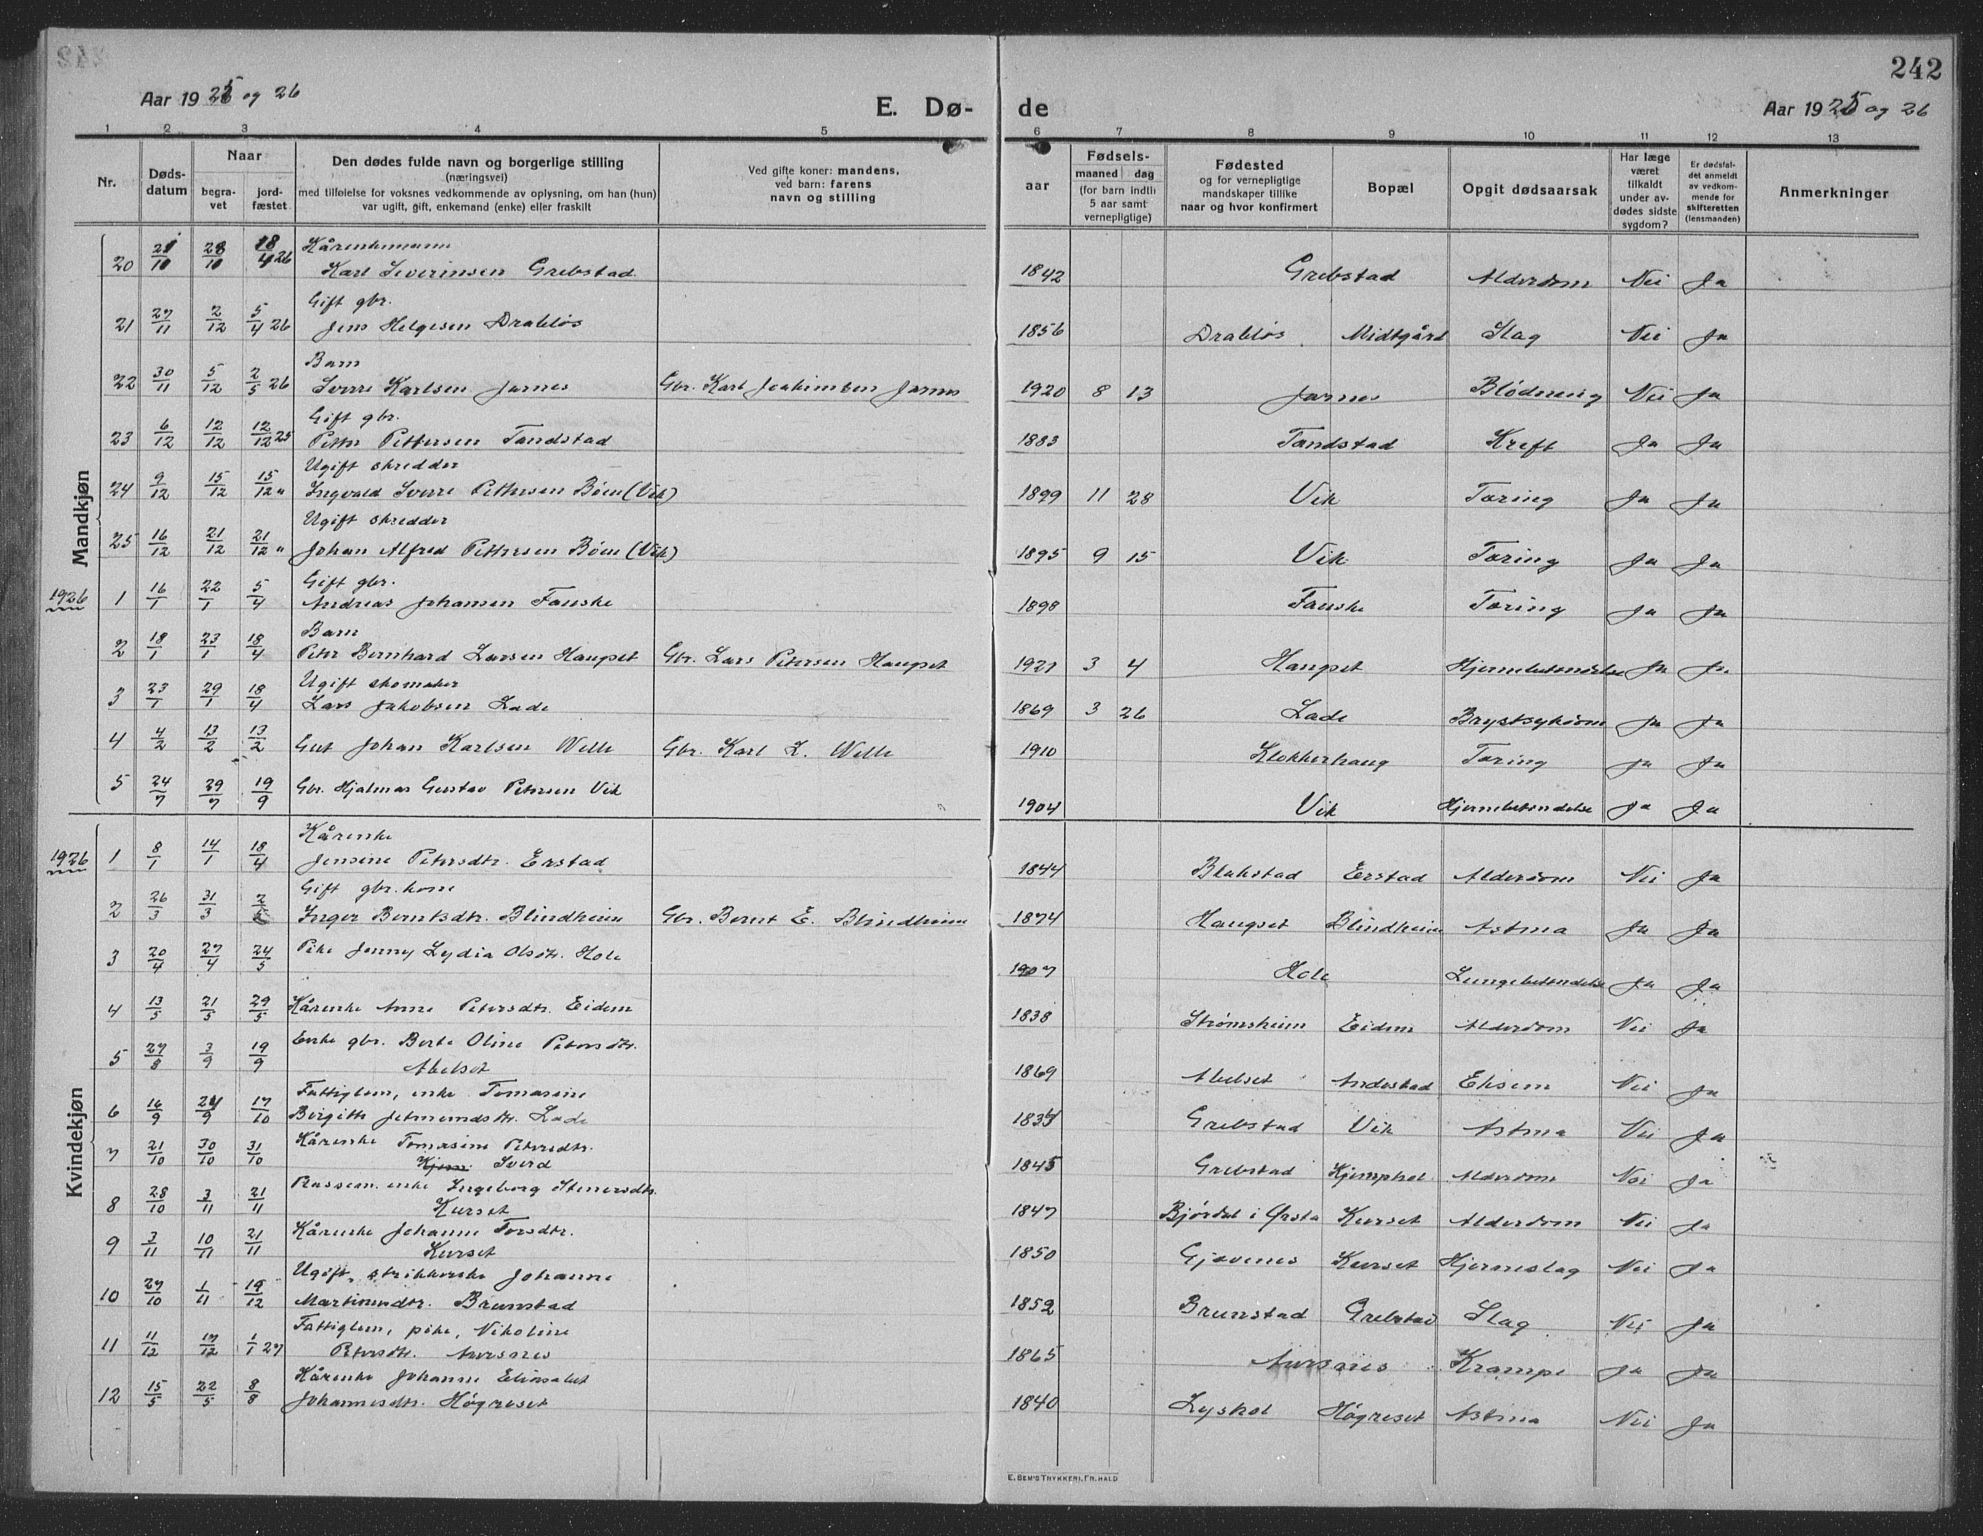 242
Aar 1925 og 26
E. Dø-
de
Aar 1925 og 26
1 2 3 4 5 6 7 8 9 10 11 12 13
Nr.
Døds-
datum
Naar
begra-
vet
jord-
fæstet
Den dødes fulde navn og borgerlige stilling
(næringsvei)
med tilføielse for voksnes vedkommende av oplysning, om han (hun)
var ugift, gift, enkemand (enke) eller fraskilt
Ved gifte koner: mandens,
ved barn: farens
navn og stilling
Fødsels-
aar
maaned dag
(for barn indtil
5 aar samt
vernepligtige)
Fødested
og for vernepligtige
mandskaper tillike
naar og hvor konfirmert
Bopæl
Opgit dødsaarsak
Har læge
været
tilkaldt
under av-
dødes sidste
sygdom?
Er dødsfal-
det anmeldt
av vedkom-
mende for
skifteretten
(lensmanden)
Anmerkninger
Mandkjøn
Kårenkemann
20 21/10 28/10 18/4 26 Karl Severinsen Grebstad 1842 Grebstad Alderdom Nei Ja
Gift gbr.
21 27/11 2/12 5/4 26 Jens Helgesen Drabløs 1856 Drabløs Midtgård Slag Nei Ja
Barn
22 30/11 5/12 2/5 26 Sverre Karlsen Jarnes Gbr. Karl Joakimsen Jarnes 1920 8 13 Jarnes Blødning Nei Ja
Gift gbr.
23 6/12 12/12 12/12 25 Petter Pettersen Tandstad 1883 Tandstad Kreft Ja Ja
Ugift skredder
24 9/12 15/12 15/12 " Ingvald Sverre Pettersen Bøen (Vik) 1899 11 28 Vik Tæring Ja Ja
Ugift skredder
25 16/12 21/12 21/12 " Johan Alfred Pettersen Bøen (Vik) 1895 9 15 Vik Tæring Ja Ja
1926
Gift gbr.
1 16/1 22/1 5/4 Andreas Johansen Fauske 1898 Fauske Tæring Ja Ja
Barn
2 18/1 23/1 18/4 Peter Bernhard Larsen Haugset Gbr. Lars Petersen Haugset 1921 3 4 Haugset Hjernebetændelse Ja Ja
Ugift skomaker
3 23/1 29/1 18/4 Lars Jakobsen Lade 1869 3 26 Lade Brystsykdom Ja Ja
4 4/2 13/2 13/2 Gut Johan Karlsen Welle Gbr. Karl L. Welle 1910 Klokkerhaug Tæring Ja Ja
5 24/7 29/7 19/9 Gbr. Hjalmar Gustav Petersen Vik 1904 Vik Hjernebetændelse Ja Ja
Kvindekjøn
1926
Kårenke
1 8/1 14/1 18/4 Jensine Petersdtr. Erstad 1844 Blakstad Erstad Alderdom Nei Ja
Gift gbr. kone
2 26/3 31/3 2/5 Inger Berntsdtr. Blindheim Gbr. Bernt E. Blindheim 1874 Haugset Blindheim Astma Ja Ja
3 20/4 27/4 24/5 Pike Jenny Lydia Olsdtr. Hole 1907 Hole Lungebetændelse Ja Ja
4 13/5 21/5 29/5 Kårenke Anne Petersdtr. Eidem 1838 Strømsheim Eidem Alderdom Nei Ja
Enke gbr. Berte Oline Petersdtr.
5 27/8 3/9 19/9 Abelset 1869 Abelset Andestad Eksem Nei Ja
Fattiglem, enke Tomasine
6 16/9 24/9 17/10 Bergitte Jetmundsdtr. Lade 1835 Grebstad Vik Astma Nei Ja
Kårenke Tomasine Petersdtr.
7 21/10 30/10 31/10 Sverd 1845 Grebstad Kjemphol Alderdom Nei Ja
enke Ingeborg Steinersdtr.
8 28/10 3/11 21/11 Kurset 1847 Bjørdal i Ørsta Kurset Alderdom Nei Ja
Kårenke Johanne Torsdtr.
9 3/11 10/11 21/11 Kurset 1850 Gjøvenes Kurset Hjerneslag Nei Ja
Ugift, strikkerske Johanne
10 27/10 1/11 19/12 Martinusdtr. Brunstad 1852 Brunstad Grebstad Slag Nei Ja
Fattiglem, pike, Nikoline
11 11/12 17/12 1/1 27 Petersdtr. Aursnes 1865 Aursnes Krampe Ja Ja
Kårenke Johanne Elisabet
12 15/5 22/5 8/8 Johannesdtr. Høgreset 1840 Lyshol Høgreset Astma Nei Ja
E. SEM'S TRYKKERI, FR.HALD